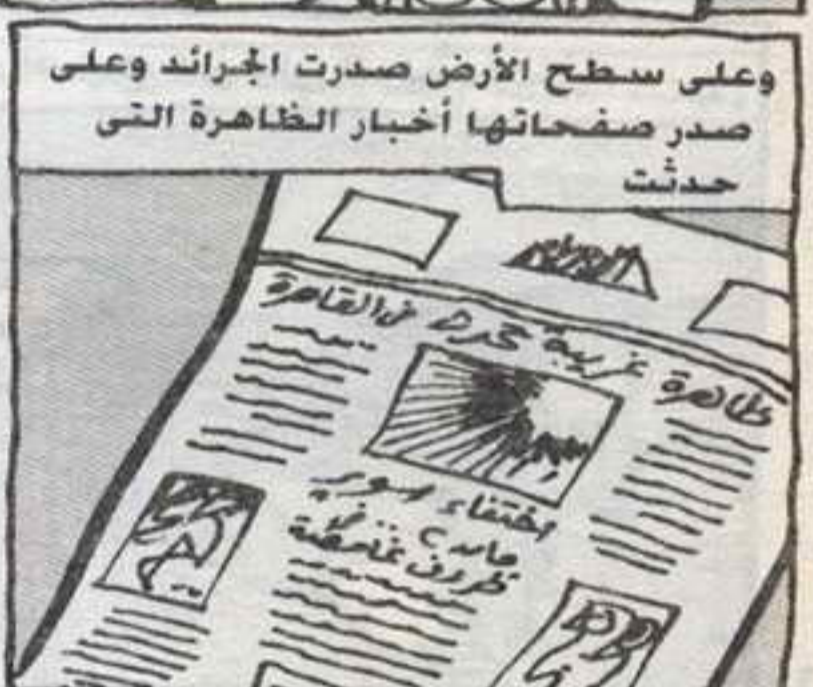 وعلى سطح الأرض صدرت الجرائد وعلى
صدر صفحاتها أخبار الظاهرة التى
حدثت
ظاهرة غريبة تحدث فى القاهرة
اختفاء سوبر
فى
ظروف غامضة